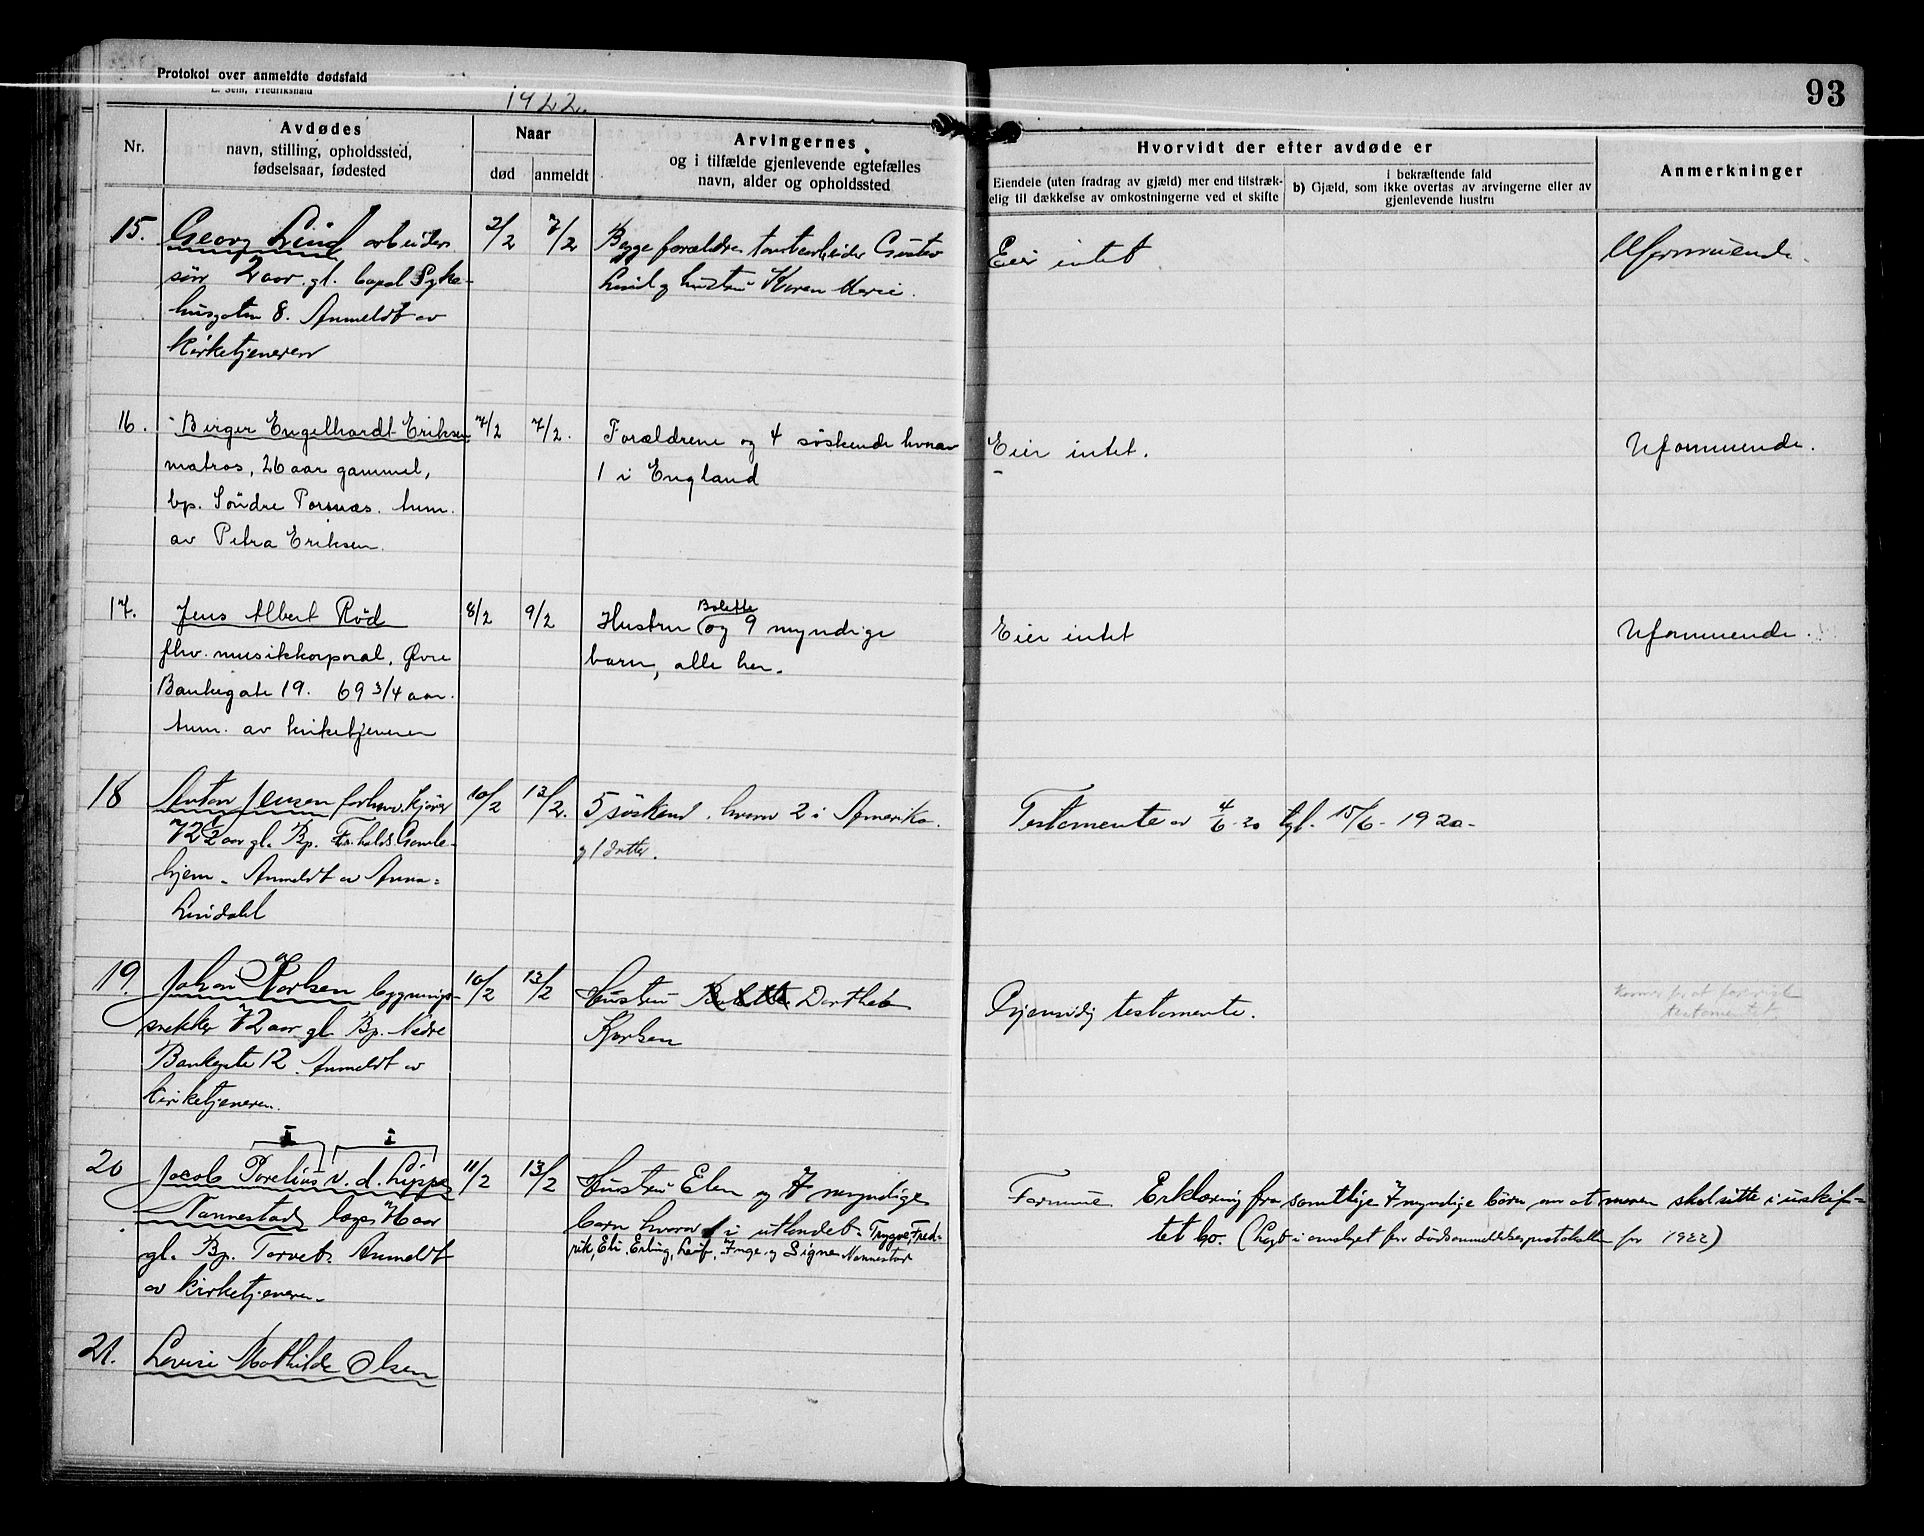 Protokol over anmeldte dødsfald
E. Sem, Fredrikshald
1922.
93
Nr.
Avdødes
navn, stilling, opholdssted,
fødselsaar, fødested
Naar
død
anmeldt
Arvingernes
og i tilfælde gjenlevende egtefælles
navn, alder og opholdssted
Hvorvidt der efter avdøde er
Eiendele (uten fradrag av gjæld) mer end tilstræk-
elig til dækkelse av omkostningerne ved et skifte
i bekræftende fald
b) Gjæld, som ikke overtas av arvingerne eller av
gjenlevende hustru
Anmerkninger
15.
Georg Lind arbeider
søn 2 aar gl. bopæl Syke-
husgaten 8. Anmeldt av
kirketjeneren
2/2
7/2
Begge forældre tomtearbeider Gustav
Lind og hustru Karen Marie.
Eier intet
Uformuende.
16.
Birger Engelhardt Eriksen
matros, 26 aar gammel,
bp. Søndre Porsnæs. Anm.
av Petra Eriksen.
7/2
7/2.
Forældrene og 4 søskende hvorav
1 i England
Eier intet.
Uformuende.
17.
Jens Albert Rød
fhv. musikkorporal, Øvre
Bankegate 19. 69 3/4 aar.
Anm. av kirketjeneren
8/2
9/2
Bolette
Hustru og 9 myndige
barn, alle her.
Eier intet
Uformuende.
18
Anton Jensen forhenv. kjører
72 1/2 aar gl. Bp. Fr.halds Gamle-
hjem. Anmeldt av Anna
Lindahl
10/2
13/2.
5 søskend, hvorav 2 i Amerika
og 1 datter.
Testamente av 4/6-20 tgl. 15/6-1920-
19.
Johan Karlsen bygnings-
snekker 72 aar gl. Bp. Nedre
Bankegate 12. Anmeldt av
kirketjeneren.
10/2
13/2
Hustru Bolette Dorthea
Karlsen
Gjensidig testamente.
testamentet
20
Jacob Porelius v. d. Lippe
Nannestad læge
gl. Bp. Torvet. Anmeldt
av kirketjeneren.
11/2
13/2
Hustru Elen og 7 myndige
barn hvorav 1 i utlandet. Trygve, Fred-
rik, Eli, Erling, Leif, Inge og Signe Nannestad
Formue Erklæring fra samtlige 7 myndige børn om at moren skal sitte i uskif-
tet bo. (Lagt i omslaget for dødsanmeldelsesprotokollen for 1922)
21.
Lovise Mathilde Olsen